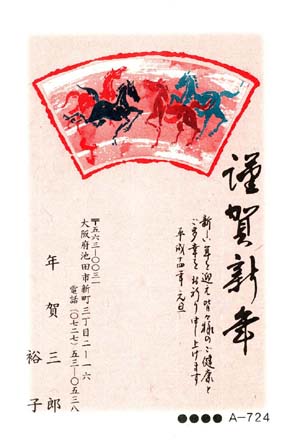 謹賀新年
新しい年を迎え皆々様のご健康と
ご多幸をお祈り申し上げます
平成十四年元旦
〒五六三-〇〇三一
大阪府池田市新町三丁目二-一六
電話(〇七二七)五三-〇五三八
年賀三郎
裕子
A-724